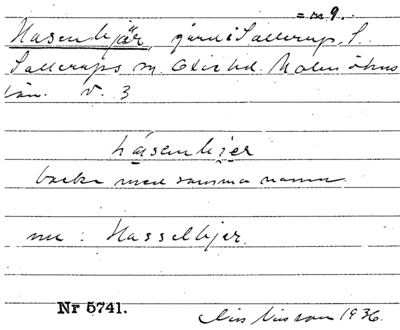 = n 9.
Hasenkjär, gård i Sallerup, S.
Sallerups sn. Oxie hd. Malmöhus
län. V. 3
hásenkjer
backe med samma namn
nu: Hasselkjer.
Nr 5741.
Nils Nilsson 1936.